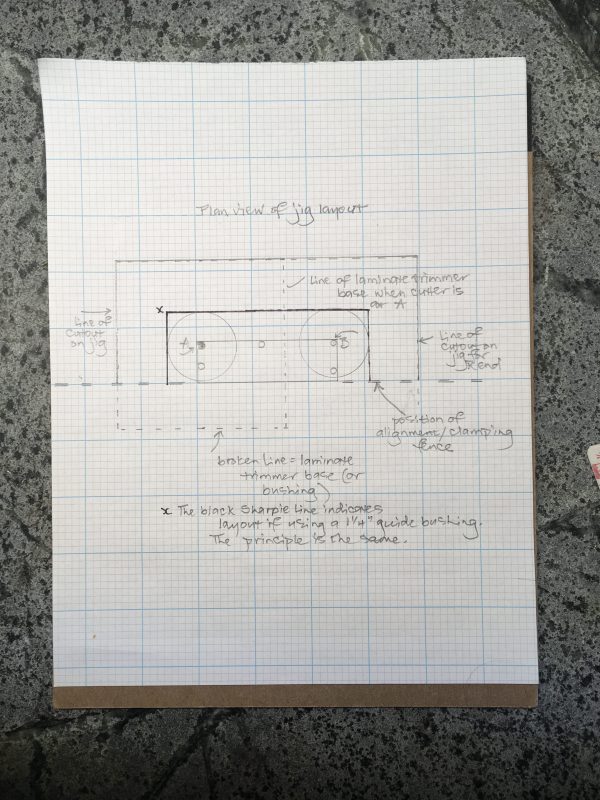 Plan view of jig layout
Line of laminate trimmer
base when cutter is
at A
x
Line of
cutout
on jig
A
B
Line of
cutout on
jig for
R end
position of
alignment/clamping
fence
broken line = laminate
trimmer base (or
bushing)
x The black Sharpie line indicates
layout if using a 1 1/4" guide bushing.
The principle is the same.